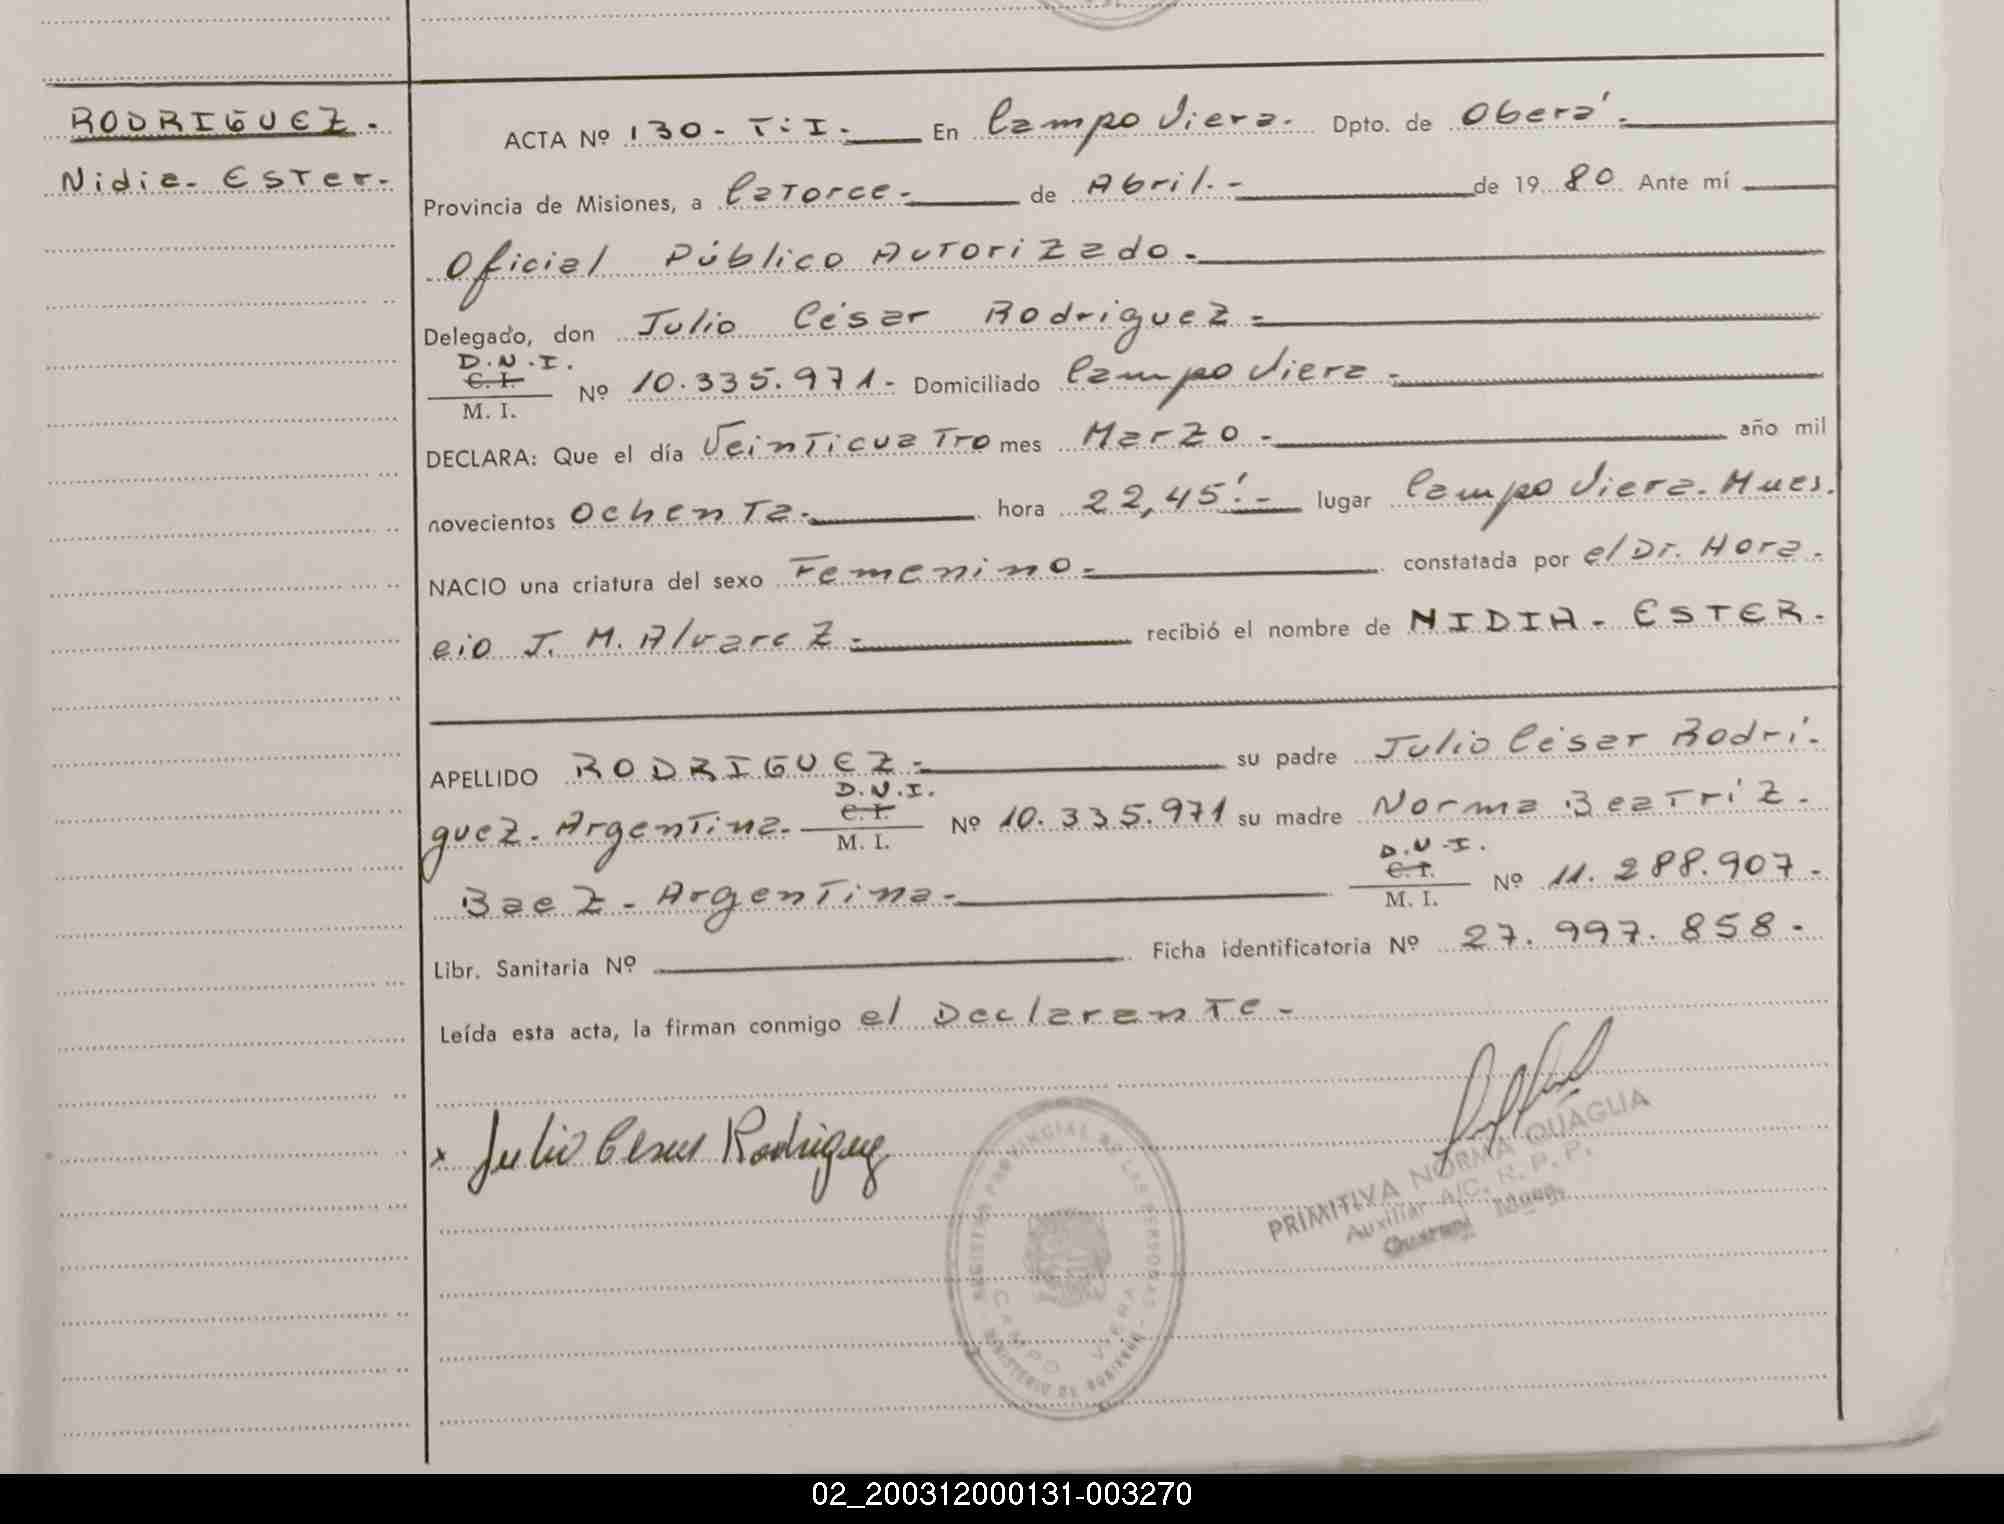 RODRIGUEZ.
Nidia- Ester-
ACTA Nº 130- T: I.- En Campo Viera. Dpto. de Oberá.
Provincia de Misiones, a Catorce- de Abril.- de 19 80 Ante mí
Oficial Público Autorizado.-
Delegado, don Julio César Rodriguez-
D.N.I.
C. I.
M. I.
Nº 10.335.971- Domiciliado Campo Viera-
DECLARA: Que el día Veinticuatro mes Marzo- año mil
novecientos Ochenta- hora 22,45'.- lugar Campo Viera. Mnes.
NACIO una criatura del sexo Femenino- constatada por el Dr. Hora-
cio J. M. Alvarez- recibió el nombre de NIDIA- ESTER-
APELLIDO RODRIGUEZ- su padre Julio César Rodrí-
D.N.I.
C. I.
M. I.
guez. Argentina. Nº 10.335.971 su madre Norma Beatríz-
D.N.I.
C. I.
M. I.
Baez- Argentina- Nº 11.288.907-
Libr. Sanitaria Nº Ficha identificatoria Nº 27.997.858-
Leída esta acta, la firman conmigo el Declarante-
x Julio Cesar Rodriguez
REGISTRO PROVINCIAL DE LAS PERSONAS
CAMPO VIERA
MINISTERIO DE GOBIERNO
PRIMITIVA NORMA QUAGLIA
Auxiliar A/C. R. P. P.
02_200312000131-003270